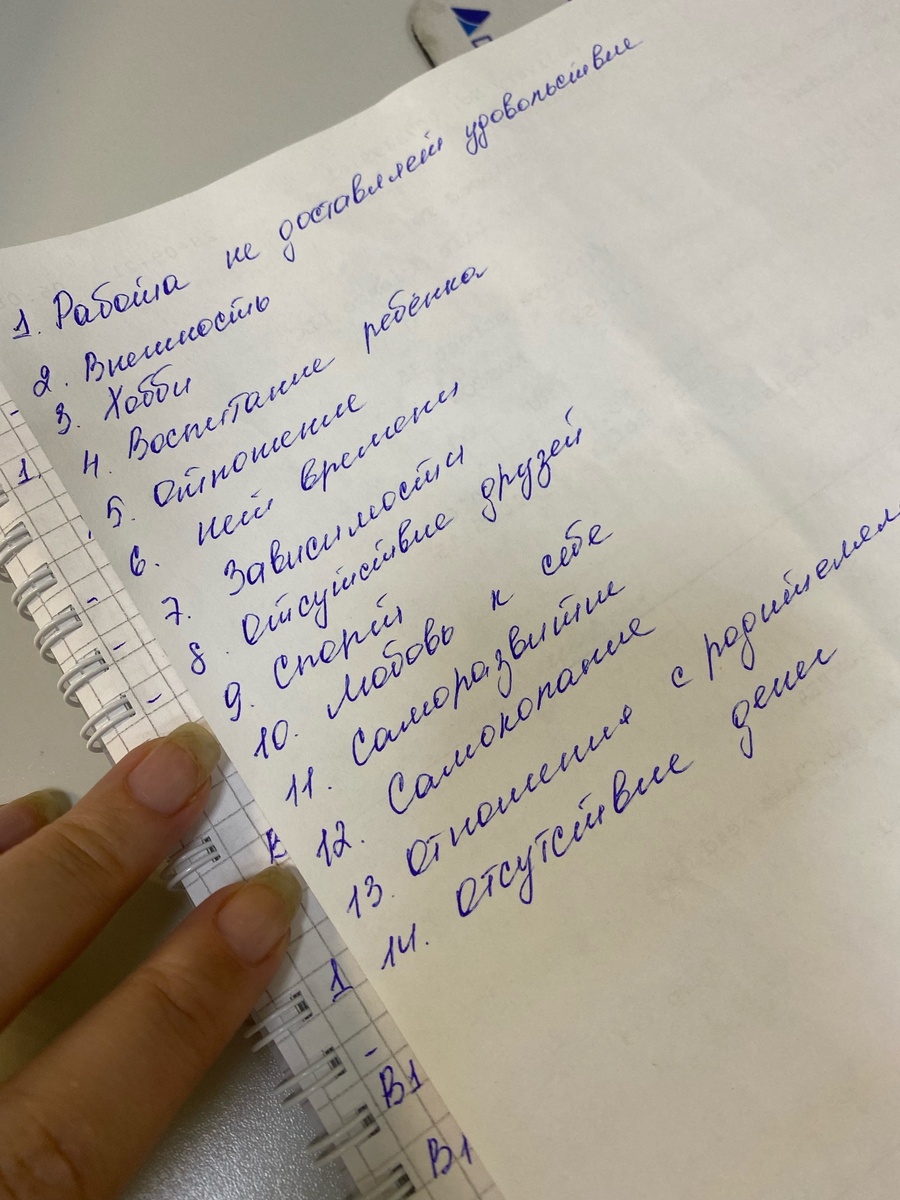 1. Работа не доставляет удовольствие
2. Внешность
3. Хобби
4. Воспитание ребёнка
5. Отношение
6. Нет времени
7. Зависимости
8. Отсутствие друзей
9. Спорт
10. Любовь к себе
11. Саморазвитие
12. Самокопание
13. Отношения с родителям
14. Отсутствие денег
1.
В
1
В1
В1